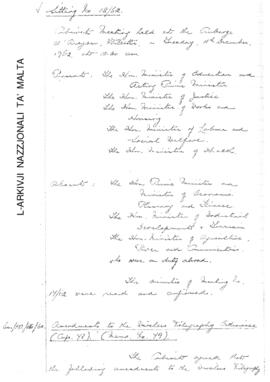 Sitting No 18/62.
Cabinet Meeting held at the Auberge
d'Aragon, Valletta, on Tuesday, 11th December,
1962 at
Present: The Hon. Minister of Education and
Acting Prime Minister
The Hon. Minister of Justice
The Hon. Minister of Works and
Housing
The Hon. Minister of Labour and
Social Welfare.
The Hon. Minister of Health.
Absent: The Hon. Prime Minister and
Minister of Economic
Planning and Finance
The Hon. Minister of Industrial
Development & Tourism
The Hon. Minister of Agriculture,
Power and Communications
who were on duty abroad.
The minutes of Meeting No.
17/62 were read and confirmed.
Amendments to the Wireless Telegraphy Ordinance
(Cap. 78). (Memo No. 49)
The Cabinet agreed that
the following amendments to the Wireless Telegraphy
L-ARKIVJI NAZZJONALI TA' MALTA